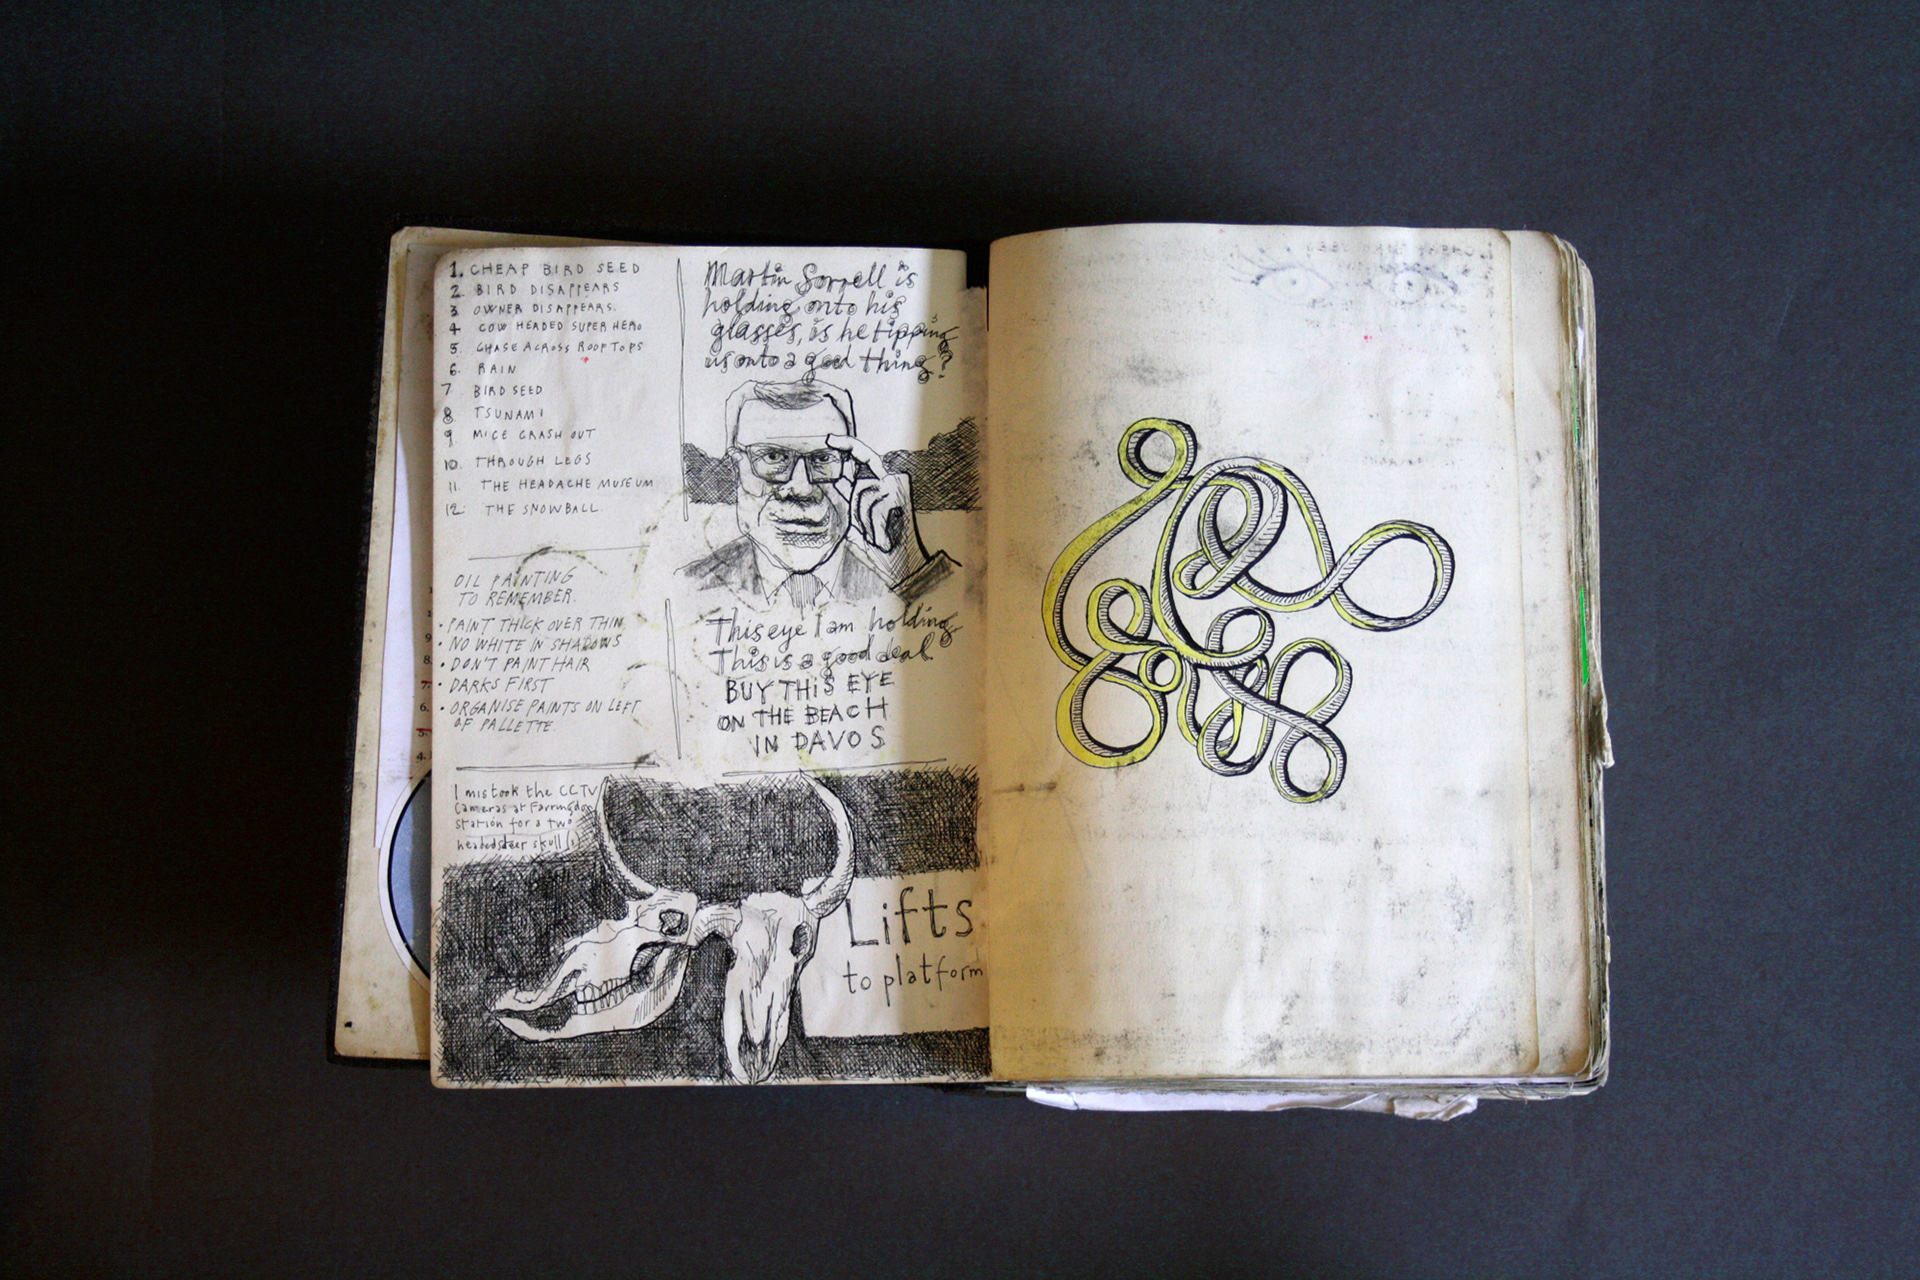 1. CHEAP BIRD SEED
2. BIRD DISAPPEARS
3. OWNER DISAPPEARS.
4 COW HEADED SUPER HERO
5. CHASE ACROSS ROOFTOPS
6. RAIN
7. BIRD SEED
8 TSUNAMI
9 MICE CRASH OUT
10. THROUGH LEGS
11. THE HEADACHE MUSEUM
12: THE SNOWBALL.
OIL PAINTING
TO REMEMBER.
• PAINT THICK OVER THIN
• NO WHITE IN SHADOWS
• DON'T PAINT HAIR
• DARKS FIRST
• ORGANISE PAINTS ON LEFT
OF PALLETTE.
Martin Sorrell is
holding onto his
glasses, is he tipping
us onto a good thing?
This eye I am holding.
This is a good deal.
BUY THIS EYE
ON THE BEACH
IN DAVOS
I mistook the CCTV
Cameras at Farringdon
station for a two
headed steer skull
Lifts
to platform
9.
8.
7.
6.
5.
4.